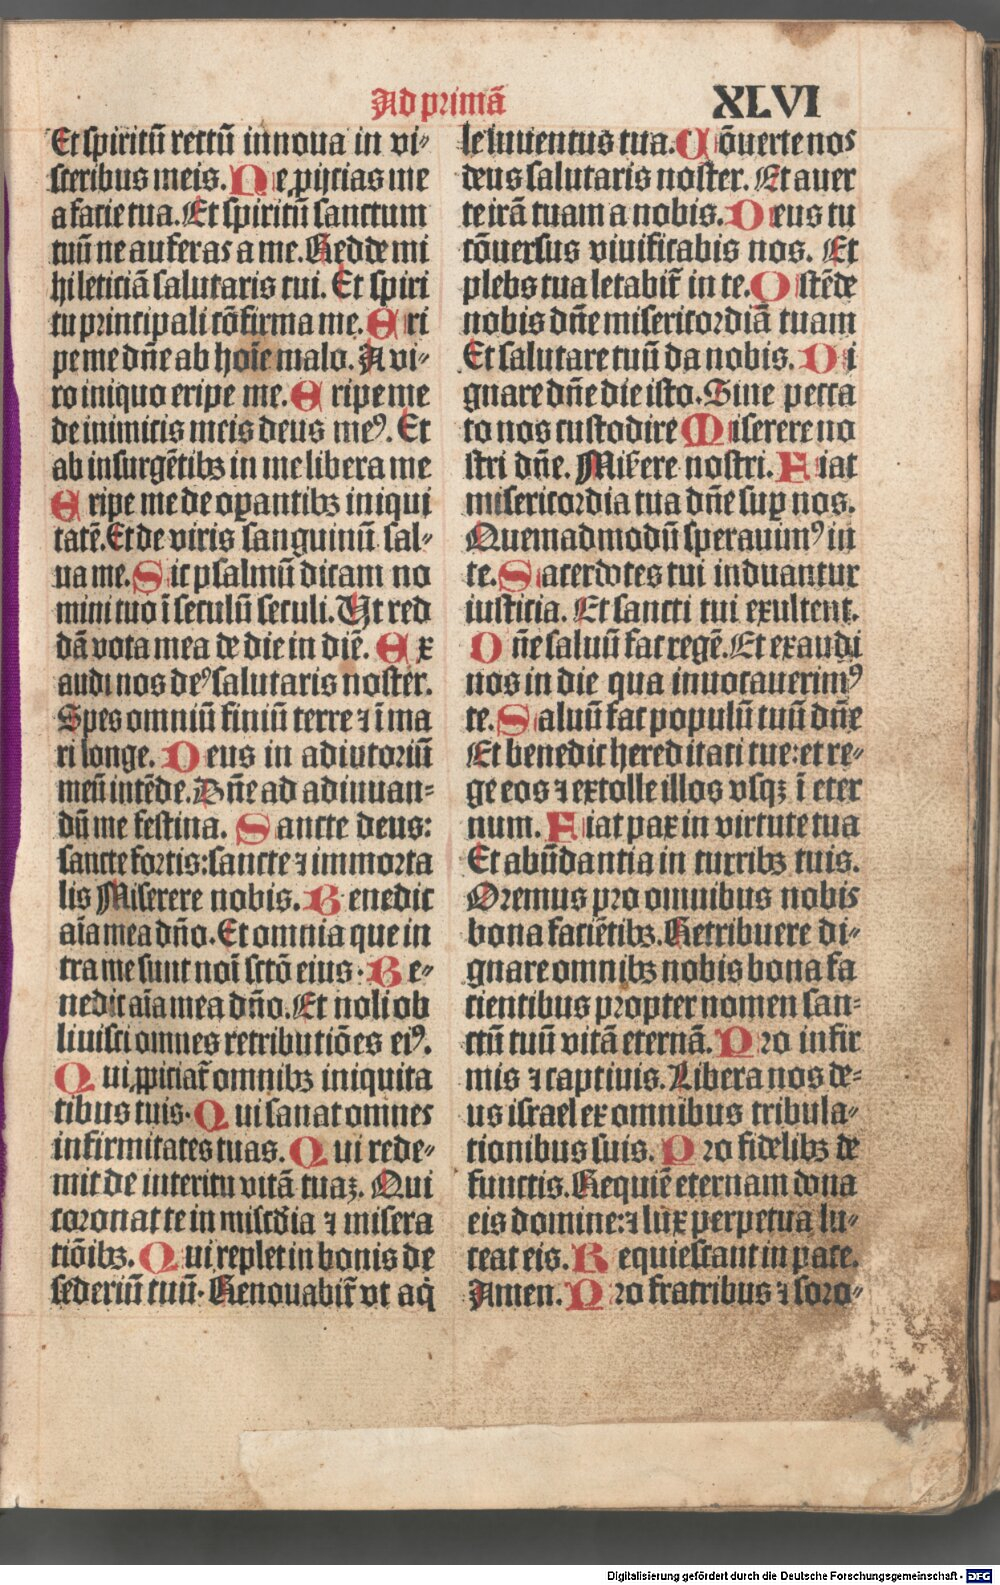 Ad primā
XLVI
Et spiritū rectū innoua in vi-
sceribus meis. Ne ꝓijcias me
a facie tua. Et spiritū sanctum
tuū ne auferas a me. Redde mi
hi leticiā salutaris tui. Et spiri
tu principali cōfirma me. Eri
pe me dn̄e ab hoīe malo. A vi-
ro iniquo eripe me. Eripe me
de inimicis meis deus meꝰ. Et
ab insurgētibꝫ in me libera me
Eripe me de oꝑantibꝫ iniqui
tatē. Et de viris sanguinū sal-
ua me. Sic psalmū dicam no
mini tuo ī seculū seculi. Vt red
dā vota mea de die in diē. Ex
audi nos deꝰ salutaris noster.
Spes omniū finiū terre ⁊ ī ma
ri longe. Deus in adiutoriū
meū intēde. Dn̄e ad adiuuan-
dū me festina. Sancte deus:
sancte fortis: sancte ⁊ immorta
lis Miserere nobis. Benedic
aīa mea dn̄o. Et omnia que in
tra me sunt noī sctō eius. Be-
nedic aīa mea dn̄o. Et noli ob
liuisci omnes retributiōes eiꝰ.
Qui ꝓpiciat̄ omnibꝫ iniquita
tibus tuis. Qui sanat omnes
infirmitates tuas. Qui rede-
mit de interitu vitā tuaꝫ. Qui
coronat te in miscd̄ia ⁊ misera
tiōibꝫ. Qui replet in bonis de
sideriū tuū. Renouabit̄ vt aq̇
le iuuentus tua. Cōuerte nos
deus salutaris noster. Et auer
te irā tuam a nobis. Deus tu
cōuersus viuificabis nos. Et
plebs tua letabit̄ in te. Ostēde
nobis dn̄e misericordiā tuam
Et salutare tuū da nobis. Di
gnare dn̄e die isto. Sine pecca
to nos custodire Miserere no
stri dn̄e. Mis̄ere nostri. Fiat
misericordia tua dn̄e suꝑ nos.
Quemadmodū sperauimꝰ in
te. Sacerdotes tui induantur
iusticia. Et sancti tui exultent.
Dn̄e saluū fac regē. Et exaudi
nos in die qua inuocauerimꝰ
te. Saluū fac populū tuū dn̄e
Et benedic hereditati tue: et re-
ge eos ⁊ extolle illos vsqꝫ ī eter
num. Fiat pax in virtute tua
Et abūdantia in turribꝫ tuis.
Oremus pro omnibus nobis
bona faciētibꝫ. Retribuere di-
gnare omnibꝫ nobis bona fa
cientibus propter nomen san-
ctū tuū vitā eternā. Pro infir
mis ⁊ captiuis. Libera nos de-
us israel ex omnibus tribula-
tionibus suis. Pro fidelibꝫ de
functis. Requiē eternam dona
eis domine: ⁊ lux perpetua lu-
ceat eis. Requiescant in pace.
Amen. Pro fratribus ⁊ soro-
Digitalisierung gefördert durch die Deutsche Forschungsgemeinschaft - DFG